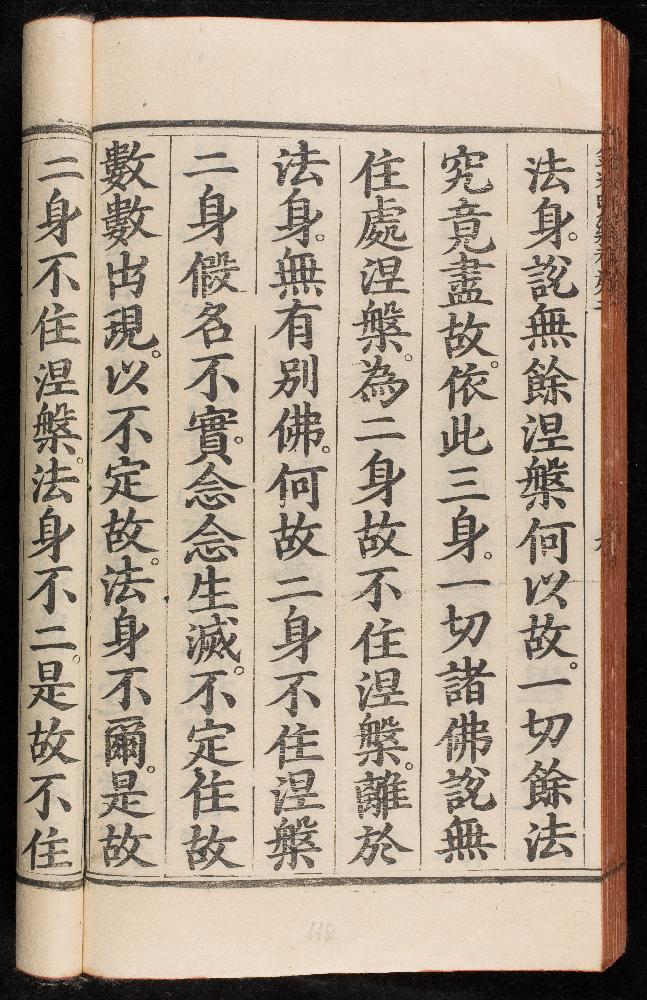 法身。說無餘涅槃何以故。一切餘法
究竟盡故。依此三身。一切諸佛說無
住處涅槃。為二身故不住涅槃。離於
法身。無有別佛。何故二身不住涅槃
二身假名不實。念念生滅。不定住故
數數出現。以不定故。法身不爾。是故
二身不住涅槃。法身不二。是故不住
118